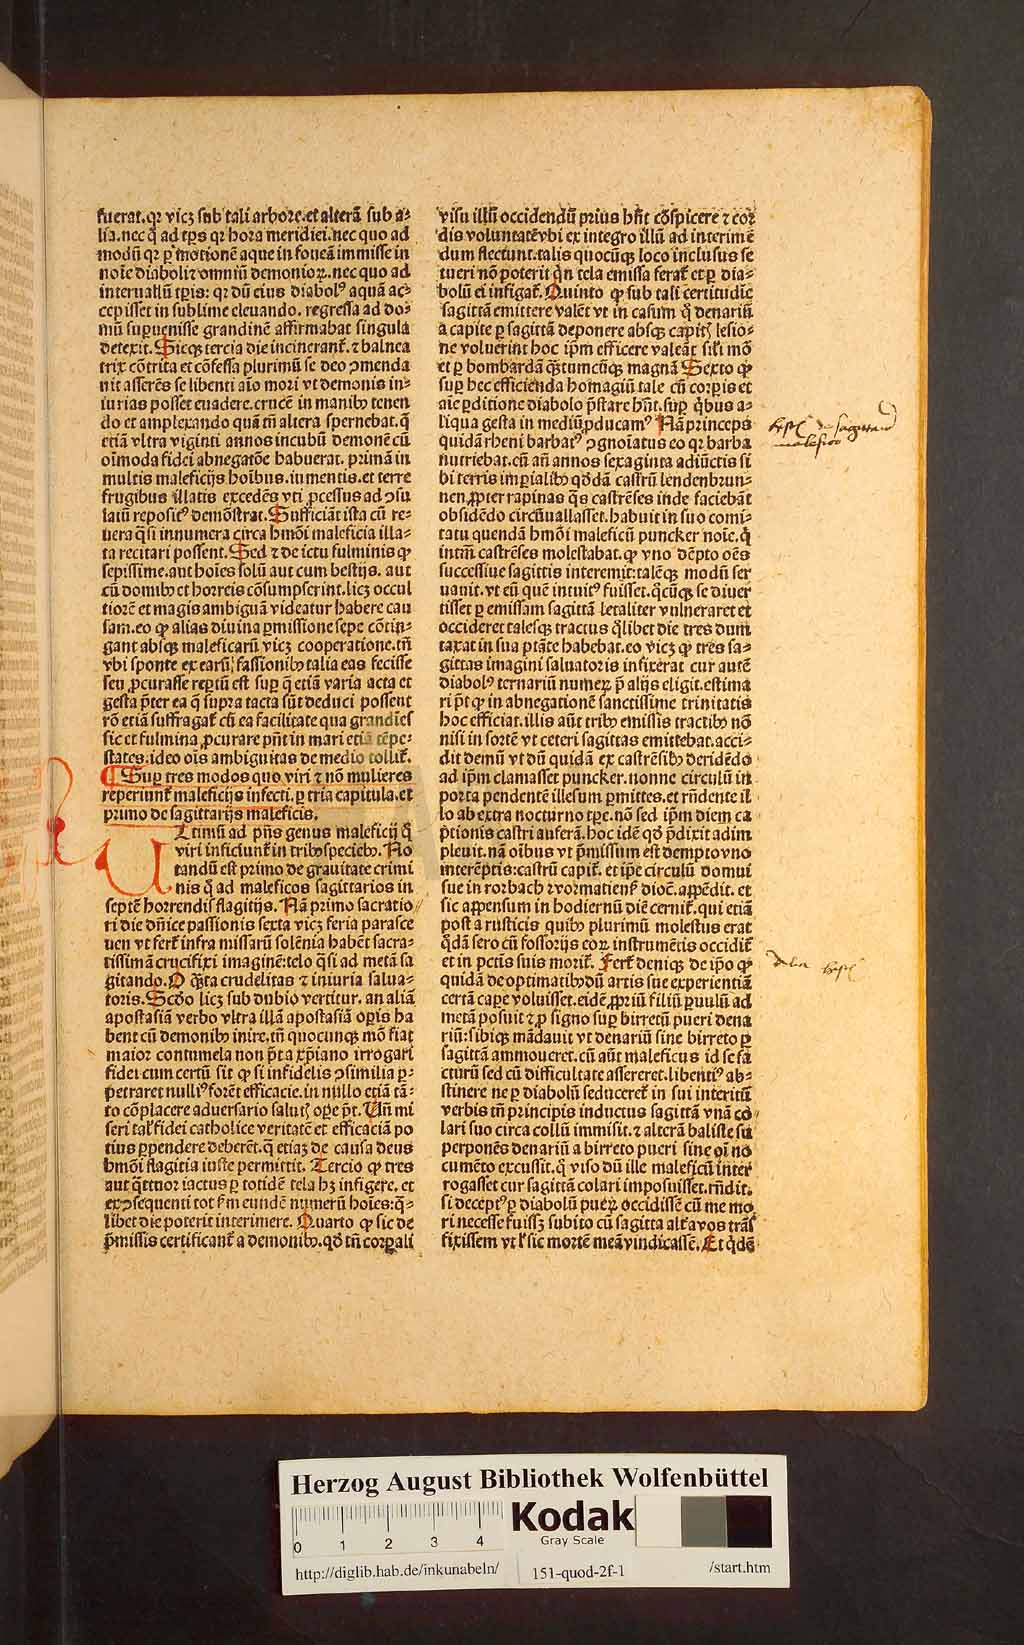 fuerat. qꝛ vicꝫ sub tali arboꝛe. et alterā sub a⸗
lia. nec q̄ ad tp̄s qꝛ hoꝛa meridiei. nec quo ad
modū qꝛ ꝑ motionē aque in foueā immisse in
noīe diaboli ⁊ omniū demonioꝝ. nec quo ad
interuallū tp̄is: qꝛ dū eius diabolꝰ aquā ac⸗
cepisset in sublime eleuando. regressa ad do⸗
mū suꝑuenisse grandinē affirmabat singula
detexit. Sicqꝫ tercia die incinerant̄. ⁊ balnea
trix cōtrita et cōfessa plurimū se deo ꝯmenda
uit asserēs se libenti aīo moꝛi vt demonis in⸗
iurias posset euadere. crucē in manibꝰ tenen
do et amplexando quā tn̄ altera spernebat. q̄
etiā vltra viginti annos incubū demonē cū
oīmoda fidei abnegatōe habuerat. primā in
multis maleficijs hoībus. iumentis. et terre
frugibus illatis excedēs vti ꝓcessus ad ꝯsu
latū repositꝰ demōstrat. Sufficiāt ista cū re⸗
uera q̄si innumera circa hmōi maleficia illa⸗
ta recitari possent. Sed ⁊ de ictu fulminis ꝙ
sepissime. aut hoīes solū aut cum bestijs. aut
cū domibꝰ et hoꝛreis cōsumpserint. licꝫ occul
tioꝛē et magis ambiguā videatur habere cau
sam. eo ꝙ alias diuina ꝑmissione sepe cōtin⸗
gant absqꝫ maleficarū vicꝫ cooperatione. tn̄
vbi sponte ex earū fassionibꝰ talia eas fecisse
seu ꝓcurasse repertū est suꝑ q̄ etiā varia acta et
gesta p̄ter ea q̄ supra tacta sūt deduci possent
rō etiā suffragat̄ cū ea facilitate qua grandīes
sic et fulmina ꝓcurare pn̄t in mari etiā tēpe⸗
states. ideo oīs ambiguitas de medio tollit̄.
¶ Suꝑ tres modos quo viri ⁊ nō mulieres
reperiunt̄ maleficijs infecti. ꝑ tria capitula. et
primo de sagittarijs maleficis.
Vltimū ad pn̄s genus maleficij q̄
viri inficiunt̄ in tribꝰ speciebꝰ. No
tandū est primo de grauitate crimi
nis q̄ ad maleficos sagittarios in
septē hoꝛrendis flagitijs. Nā primo sacratio⸗
ri die dn̄ice passionis sexta vicꝫ feria parasce
uen vt fert̄ infra missarū solēnia habēt sacra⸗
tissimā crucifixi imaginē: telo q̄si ad metā sa
gitando. O q̄ta crudelitas ⁊ iniuria salua⸗
toꝛis. Scd̄o licꝫ sub dubio vertitur. an aliā
apostasiā verbo vltra illā apostasiā oꝑis ha
bent cū demonibꝰ inire. tn̄ quocunqꝫ mō fiat
maioꝛ contumela non p̄t a xp̄iano irrogari
fidei cum certū sit ꝙ si infidelis ꝯsimilia ꝑ⸗
petraret nulliꝰ foꝛēt efficacie. in nullo etiā tā⸗
to cōplacere aduersario salutꝭ ope p̄t. Vn̄ mi
seri tal̄ fidei catholice veritatē et efficaciā po
tius ꝑpendere deberēt. q̄ etiaꝫ de causa deus
hmōi flagitia iuste permittit. Tercio ꝙ tres
aut q̄ttuoꝛ iactus ꝑ totidē tela hꝫ infigere. et
ex ꝯsequenti tot s̄m eundē numerū hoīes: q̄⸗
libet die poterit interimere. Quarto ꝙ sic de
p̄missis certificant̄ a demonibꝰ. qd̄ tn̄ coꝛꝑali
visu illū occidendū prius hn̄t cōspicere ⁊ coꝛ
dis voluntatē vbi ex integro illū ad interimē
dum flectunt. talis quocūqꝫ loco inclusus se
tueri nō poterit q̄n tela emissa ferat̄ et ꝑ dia⸗
bolū ei infigat̄. Quinto ꝙ sub tali certitudīe
sagittā emittere valēt vt in casum q̄ denariū
a capite ꝑ sagittā deponere absqꝫ capitꝭ lesio⸗
ne voluerint hoc ip̄m efficere valeāt sil̄i mō
et ꝑ bombardā q̄tumcūqꝫ magnā Sexto ꝙ
suꝑ hec efficienda homagiū tale cū coꝛꝑis et
aīe ꝑditione diabolo p̄stare hn̄t. suꝑ q̄bus a⸗
liqua gesta in mediū ꝓducamꝰ Nā princeps
quidā rheni barbatꝰ ꝯgnoīatus eo qꝛ barba
nutriebat. cū an̄ annos sexaginta adiūctis si
bi terris imꝑialibꝰ qd̄dā castrū lendenbrun⸗
nen. ꝓpter rapinas q̄s castrēses inde faciebāt
obsidēdo circūuallasset. habuit in suo comi⸗
tatu quendā hmōi maleficū puncker noīe. q̄
intm̄ castrēses molestabat. ꝙ vno dēpto oēs
successiue sagittis interemit: talēqꝫ modū ser
uauit. vt eū quē intuitꝰ fuisset. q̄cūqꝫ se diuer
tisset ꝑ emissam sagittā letaliter vulneraret et
occideret talesqꝫ tractus q̄libet die tres dum
taxat in sua p̄tāte habebat. eo vicꝫ ꝙ tres sa⸗
gittas imagini saluatoꝛis infixerat cur autē
diabolꝰ ternariū numeꝝ p̄ alijs eligit. estima
ri p̄t ꝙ in abnegationē sanctissime trinitatis
hoc efficiat. illis aūt tribꝰ emissis tractibꝰ nō
nisi in soꝛtē vt ceteri sagittas emittebat. acci⸗
dit demū vt dū quidā ex castrēsibꝰ deridēdo
ad ip̄m clamasset puncker. nonne circulū in
poꝛta pendentē illesum ꝑmittes. et rn̄dente il
lo ab extra nocturno tꝑe. nō sed ip̄m diem ca
p̄tionis castri auferā. hoc idē qd̄ p̄dixit adim
pleuit. nā oībus vt p̄missum est dempto vno
interēptis: castrū capit̄. et ip̄e circulū domui
sue in roꝛbach ⁊ voꝛmatiensꝭ dioc̄. appēdit. et
sic appensum in hodiernū diē cernit̄. qui etiā
post a rusticis quibꝰ plurimū molestus erat
q̄dā sero cū fossoꝛijs eoꝝ instrumētis occidit̄
et in pctis suis moꝛit̄. Fert̄ deniqꝫ de ip̄o ꝙ
quidā de optimatibꝰ dū artis sue experientiā
certā caꝑe voluisset. eidē ꝓpriū filiū ꝑuulū ad
metā posuit ⁊ ꝓ signo suꝑ birretū pueri dena
riū: sibiqꝫ mādauit vt denariū sine birreto ꝑ
sagittā ammoueret. cū aūt maleficus id se fa
cturū sed cū difficultate assereret. libentiꝰ ab⸗
stinere ne ꝑ diabolū seduceret̄ in sui interitū
verbis tn̄ principis inductus sagittā vnā co⸗
lari suo circa collū immisit. ⁊ alterā baliste su
perponēs denariū a birreto pueri sine oī no
cumēto excussit. q̄ viso dū ille maleficū inter
rogasset cur sagittā colari imposuisset. rn̄dit.
si deceptꝰ ꝑ diabolū pueꝝ occidissē cū me mo
ri necesse fuissꝫ subito cū sagitta alt̄a vos trās
fixissem vt vl̄ sic moꝛtē meā vindicassē. Et q̄dē
de sagittario
malefico
Herzog August Bibliothek Wolfenbüttel
0 1 2 3 4
Kodak
Gray Scale
http://diglib.hab.de/inkunabeln/ 151-quod-2f-1 /start.htm